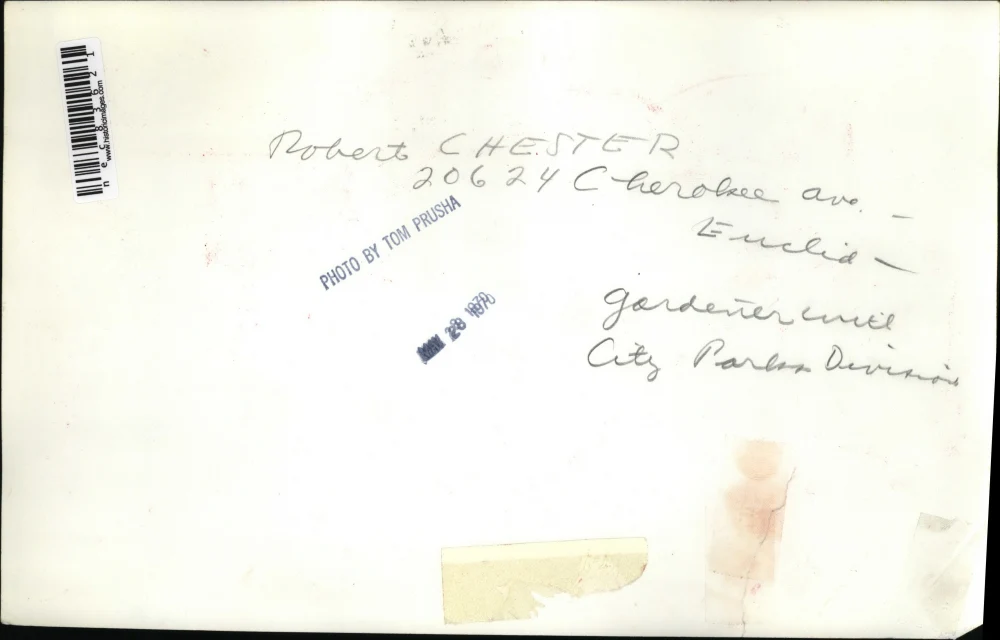 Robert CHESTER
20624 Cherokee ave. -
Euclid -
gardener with
City Parks Division
PHOTO BY TOM PRUSHA
28 1970
nec83621
www.historicimages.com